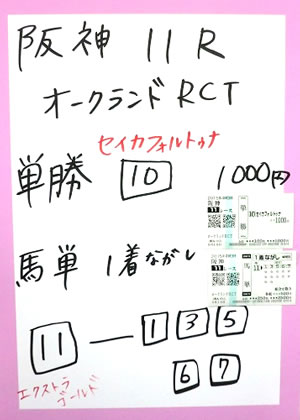 阪神 11R
オークランドRCT
セイカフォルトゥナ
単勝 10 1000円
馬単 1着ながし
11 ― 1 3 5
6 7
エクストラ
ゴールド